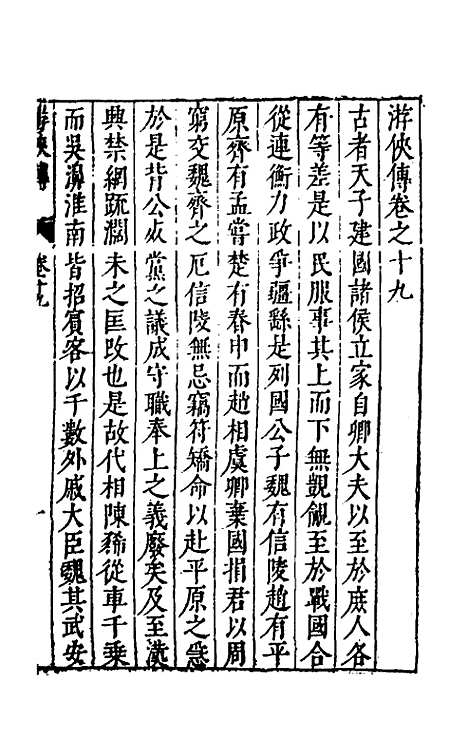 游俠傳卷之十九
古者天子建國諸侯立家自卿大夫以至於庶人各
有等差是以民服事其上而下無覬覦至於戰國合
從連衡力政爭疆繇是列國公子魏有信陵趙有平
原齊有孟嘗楚有春申而趙相虞卿棄國捐君以周
窮交魏齊之厄信陵無忌竊符矯命以赴平原之急
於是背公死黨之議成守職奉上之義廢矣及至漢
興禁網疏濶未之匡改也是故代相陳豨從車千乘
而吳濞淮南皆招賓客以千數外戚大臣魏其武安
游俠傳
卷十九
一